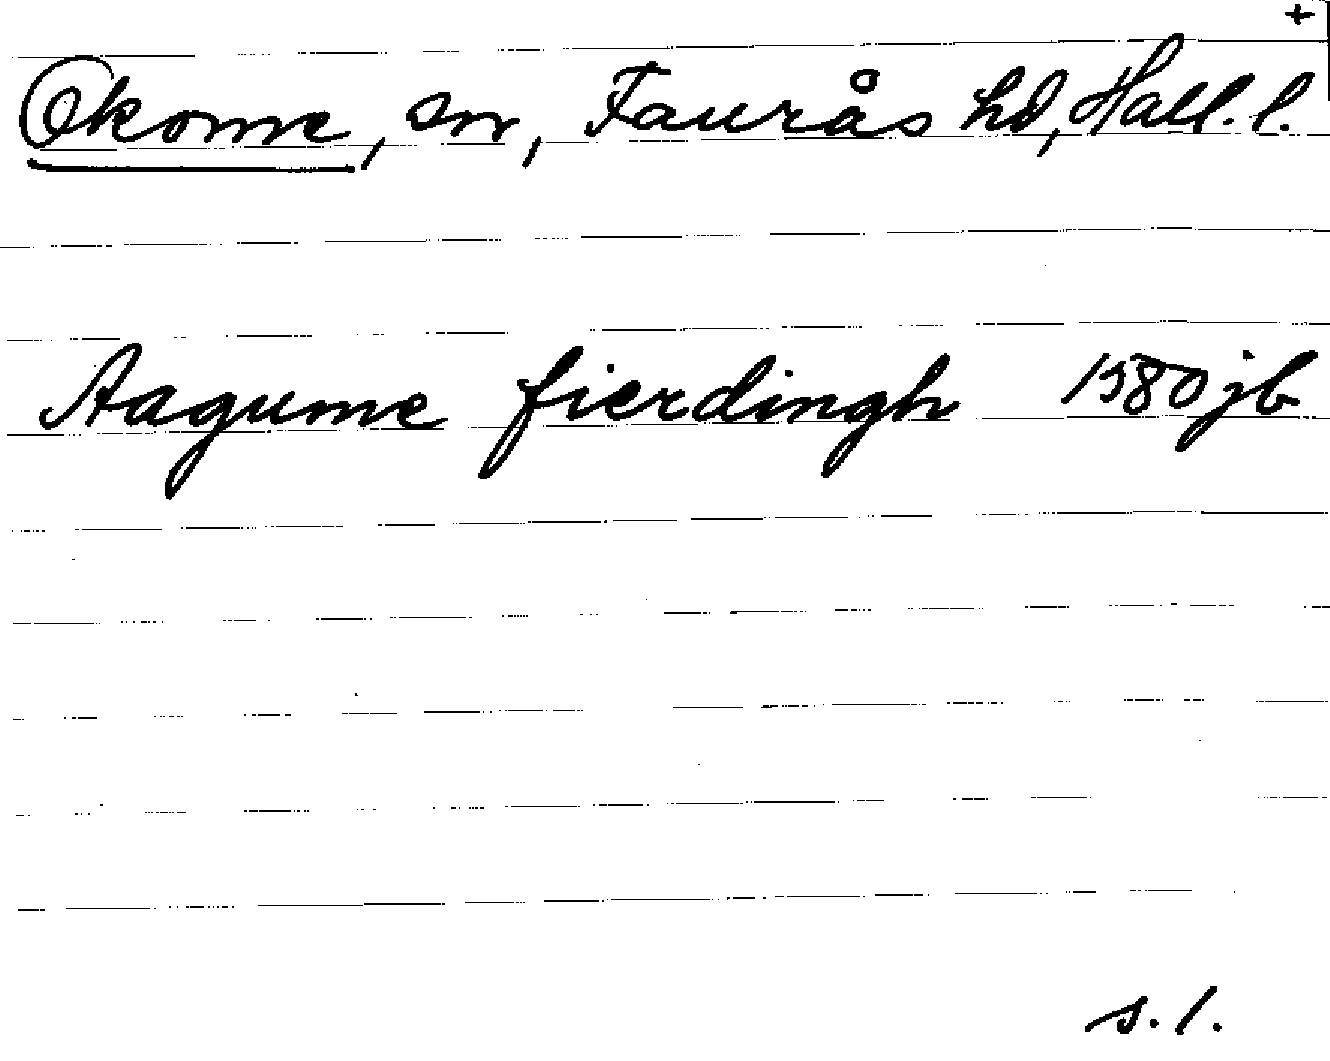 +
Okome, sn, Faurås hd, Hall. l.
Aagume fierdingh 1580 jb
s. 1.